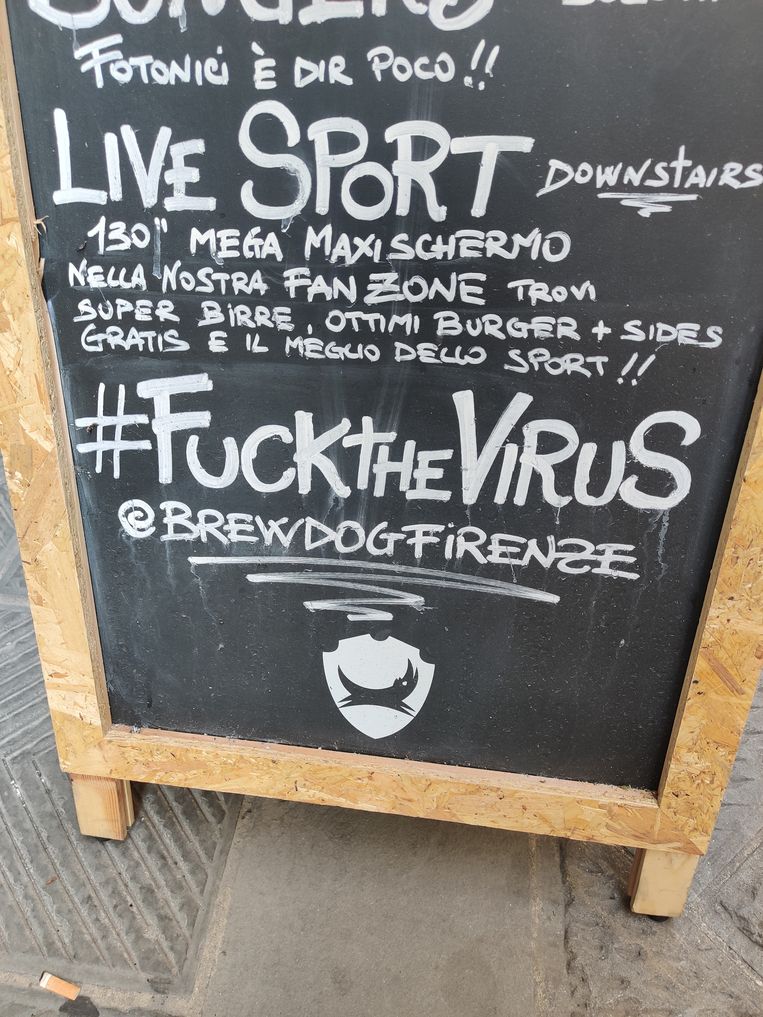 BURGERS
FOTONICI È DIR POCO !!
LIVE SPORT DOWNSTAIRS
130" MEGA MAXISCHERMO
NELLA NOSTRA FAN ZONE TROVI
SUPER BIRRE, OTTIMI BURGER + SIDES
GRATIS E IL MEGLIO DELLO SPORT !!
#FUCKTHEVIRUS
@BREWDOGFIRENZE